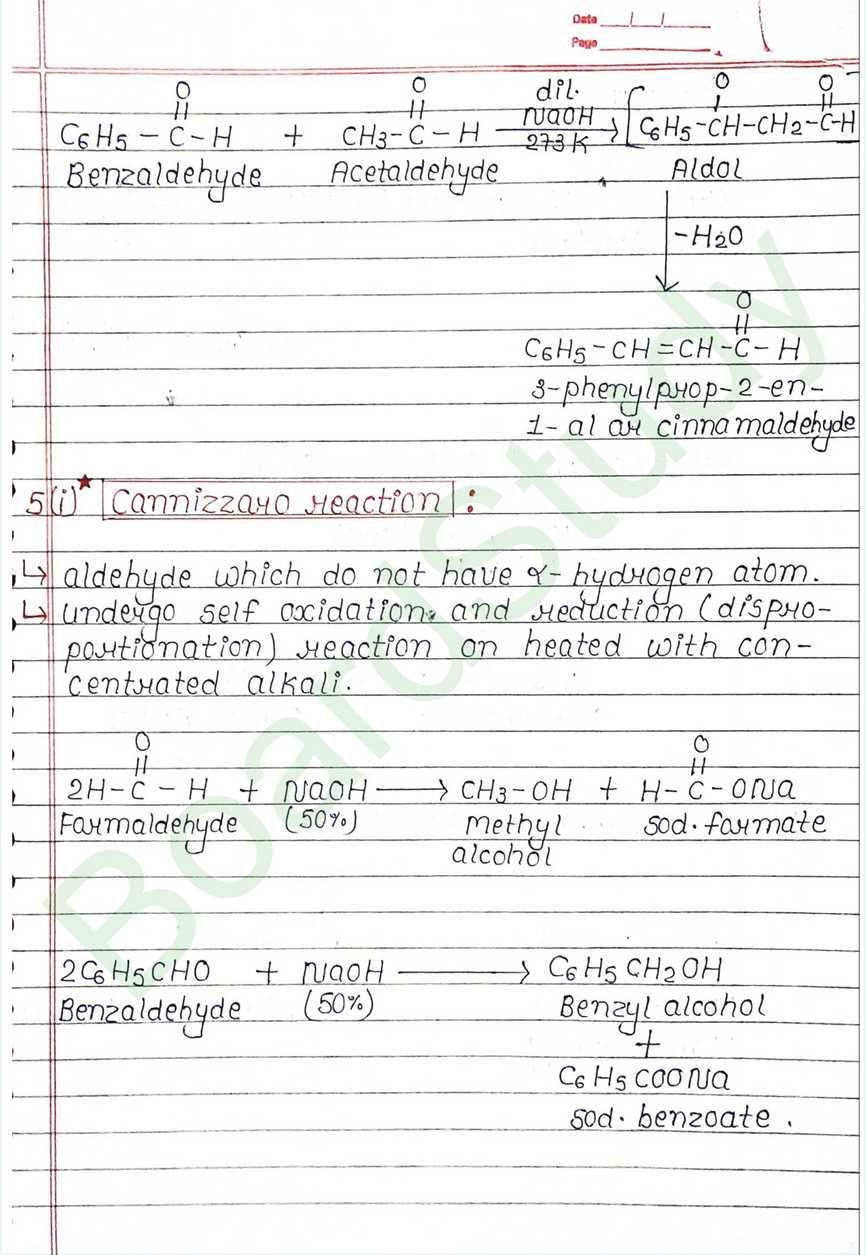 Date / /
Page
O O dil. O O
|| || NaOH | ||
C6H5 - C - H + CH3 - C - H → [C6H5 - CH - CH2 - C - H
273K
Benzaldehyde Acetaldehyde Aldol
-H2O
O
||
C6H5 - CH = CH - C - H
3-phenylprop-2-en-
1-al or cinnamaldehyde
5(i)★ Cannizzaro reaction :
↳ aldehyde which do not have α-hydrogen atom.
↳ undergo self oxidation and reduction (dispro-
portionation) reaction on heated with con-
centrated alkali.
O O
|| ||
2H - C - H + NaOH → CH3-OH + H - C - ONa
Formaldehyde (50%) Methyl sod. formate
alcohol
2C6H5CHO + NaOH → C6H5CH2OH
Benzaldehyde (50%) Benzyl alcohol
+
C6H5COONa
sod. benzoate.
BoardStudy